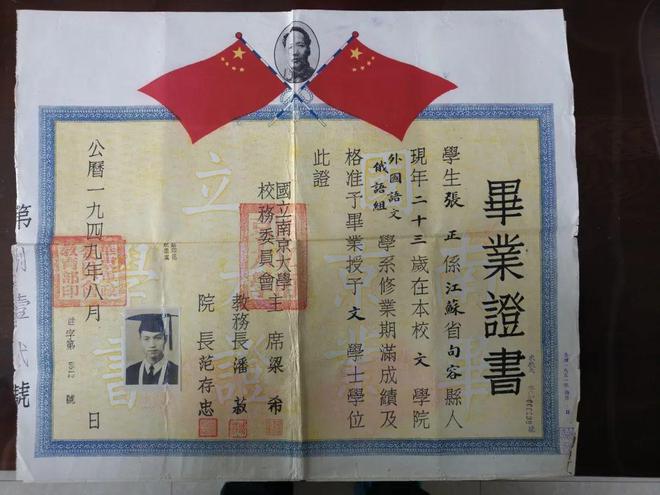 畢業證書
學生張 正係江蘇省句容縣人
現年二十三歲在本校文學院
外國語文
俄語組
學系修業期滿成績及
格准予畢業授予文學士學位
此證
國立南京大學
校務委員會
主席梁希
教務長潘菽
院長范存忠
公曆一九四九年八月 日
字第 號
第 號